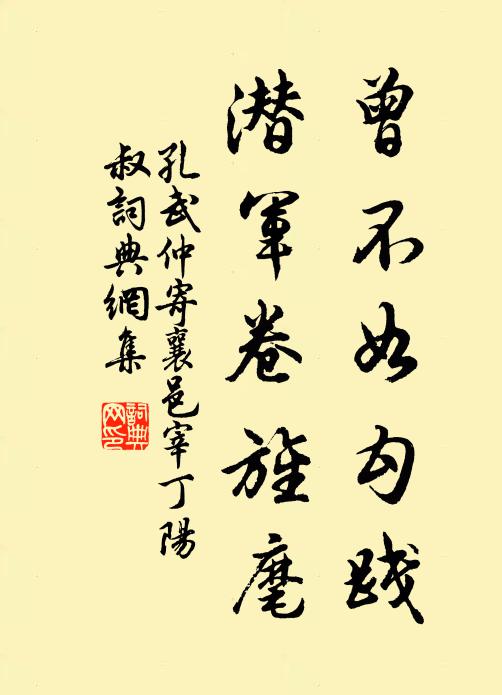 曾不如勾踐
潜軍卷旌麾
孔武仲寄襄邑宰丁陽
叔詞典網集
詞典网印